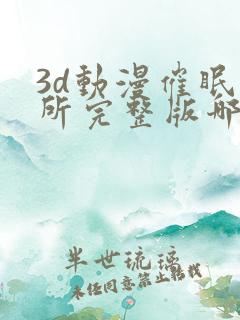 3d動漫催眠
所完整版哪
半世琉璃
未经同意禁止转载